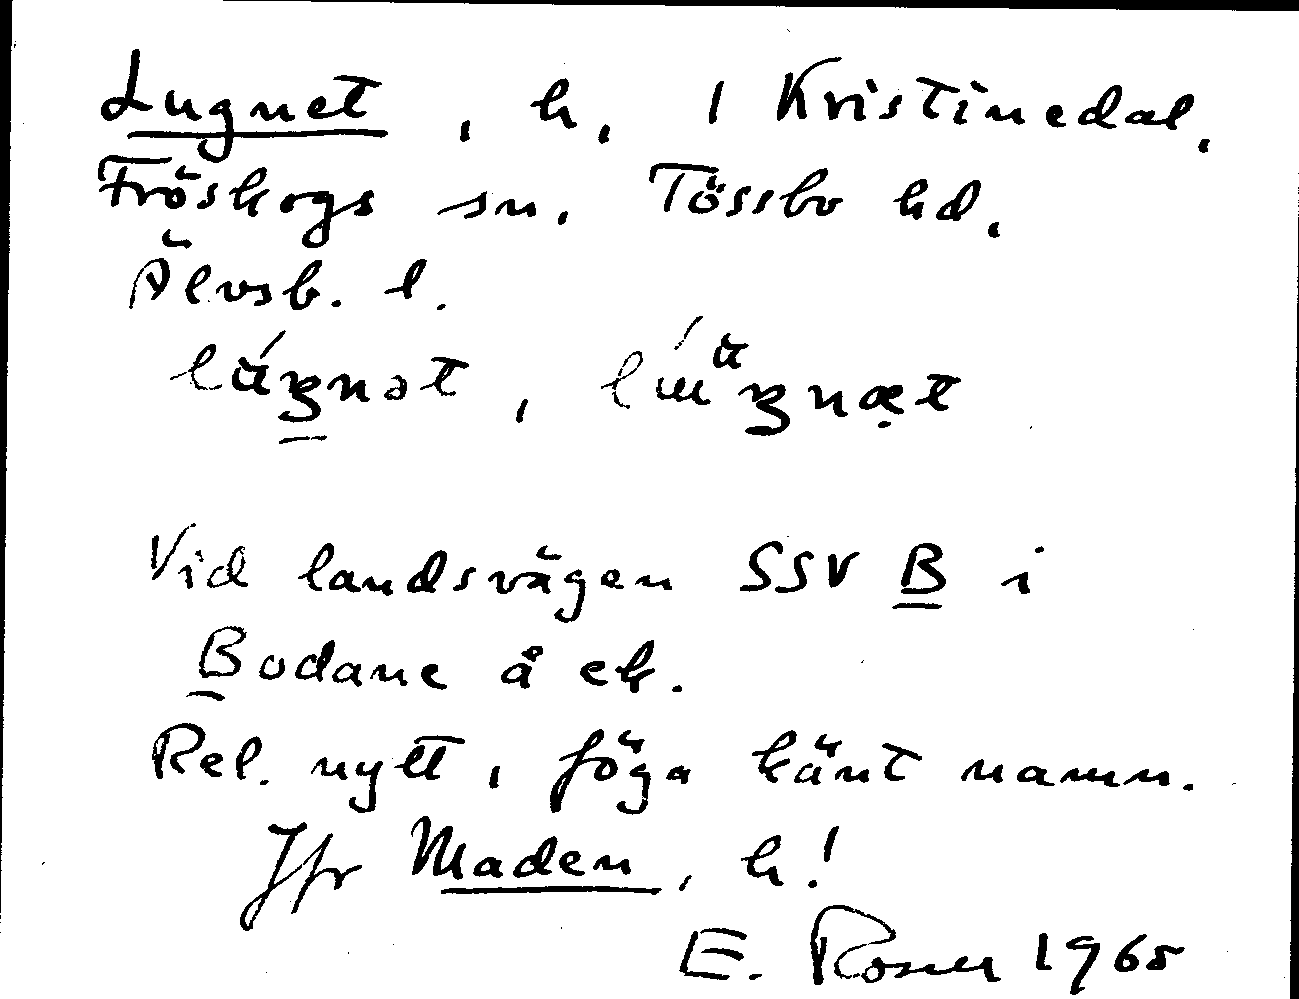 Lugnet, h. 1 Kristinedal,
Fröskogs sn. Tössbo hd,
Älvsb. l.
Vid landsvägen SSV B i
Bodane å ek.
Rel. nytt, föga känt namn.
Jfr Maden, h!
E. 1965